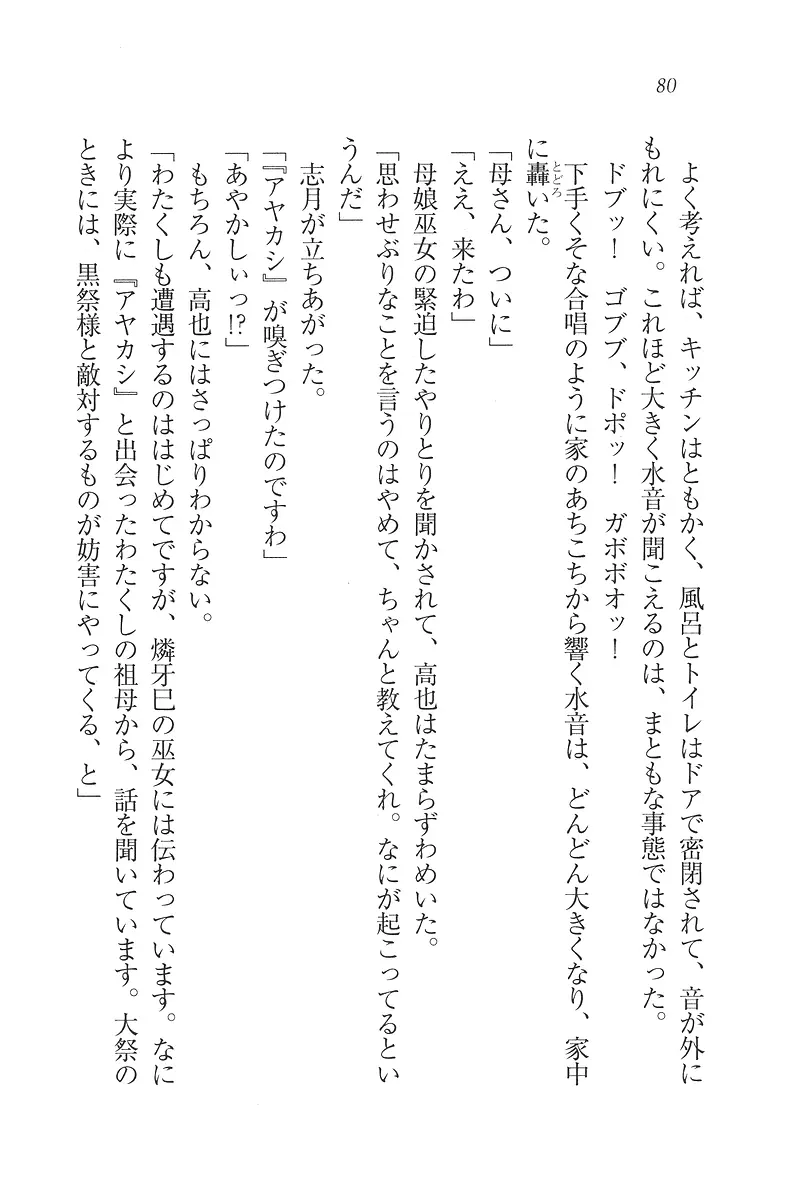 80
　よく考えれば、キッチンはともかく、風呂とトイレはドアで密閉されて、音が外に
もれにくい。これほど大きく水音が聞こえるのは、まともな事態ではなかった。
　ドブッ！　ゴブブ、ドポッ！　ガボボオッ！
　下手くそな合唱のように家のあちこちから響く水音は、どんどん大きくなり、家中
に轟いた。
とどろ
「母さん、ついに」
「ええ、来たわ」
　母娘巫女の緊迫したやりとりを聞かされて、高也はたまらずわめいた。
「思わせぶりなことを言うのはやめて、ちゃんと教えてくれ。なにが起こってるとい
うんだ」
　志月が立ちあがった。
「『アヤカシ』が嗅ぎつけたのですわ」
「あやかしぃっ!?」
　もちろん、高也にはさっぱりわからない。
「わたくしも遭遇するのははじめてですが、燐牙巳の巫女には伝わっています。なに
より実際に『アヤカシ』と出会ったわたくしの祖母から、話を聞いています。大祭の
ときには、黒祭様と敵対するものが妨害にやってくる、と」